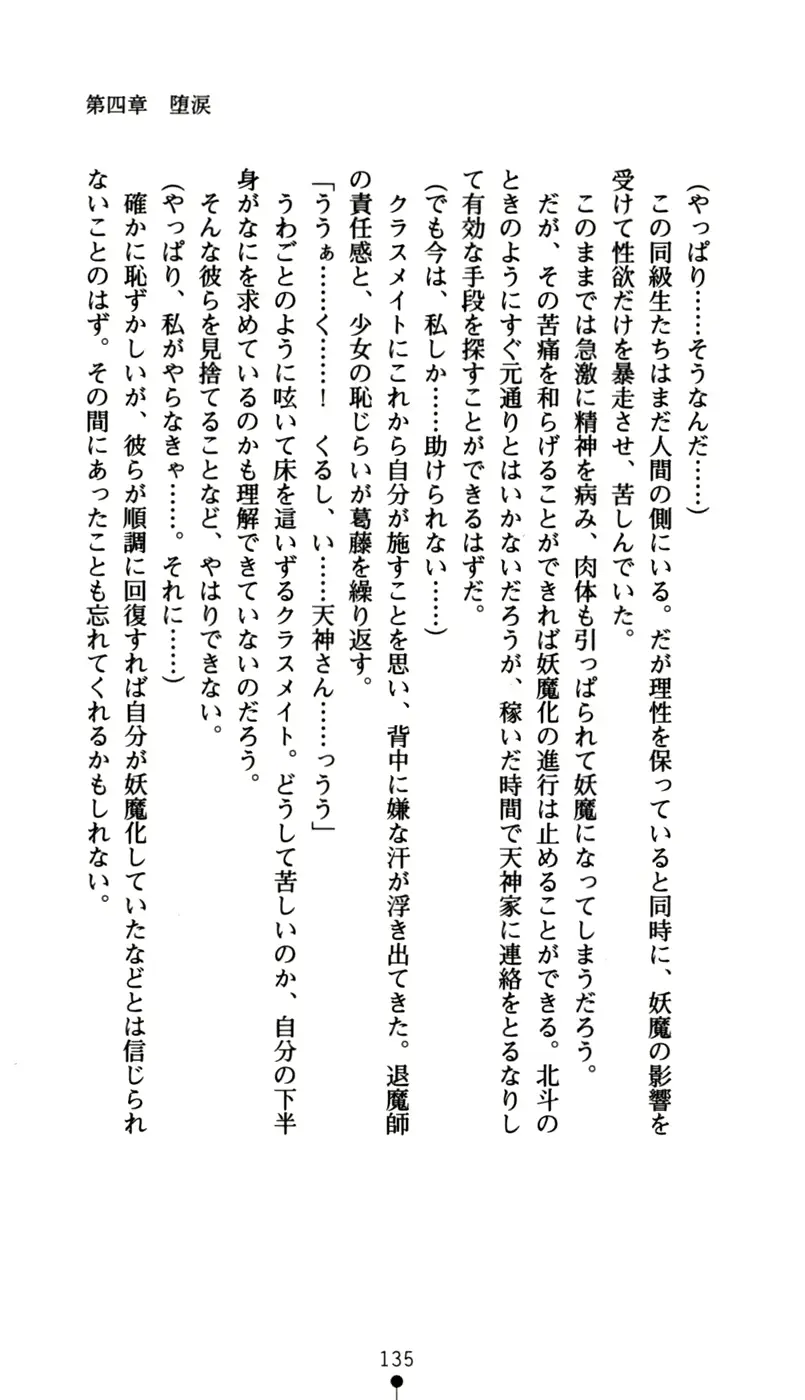 第四章　堕涙
(やっぱり……そうなんだ……)
　この同級生たちはまだ人間の側にいる。だが理性を保っていると同時に、妖魔の影響を
受けて性欲だけを暴走させ、苦しんでいた。
　このままでは急激に精神を病み、肉体も引っぱられて妖魔になってしまうだろう。
　だが、その苦痛を和らげることができれば妖魔化の進行は止めることができる。北斗の
ときのようにすぐ元通りとはいかないだろうが、稼いだ時間で天神家に連絡をとるなりし
て有効な手段を探すことができるはずだ。
(でも今は、私しか……助けられない……)
　クラスメイトにこれから自分が施すことを思い、背中に嫌な汗が浮き出てきた。退魔師
の責任感と、少女の恥じらいが葛藤を繰り返す。
「ううぁ……く……！　くるし、い……天神さん……っうう」
　うわごとのように呟いて床を這いずるクラスメイト。どうして苦しいのか、自分の下半
身がなにを求めているのかも理解できていないのだろう。
　そんな彼らを見捨てることなど、やはりできない。
(やっぱり、私がやらなきゃ……。それに……)
　確かに恥ずかしいが、彼らが順調に回復すれば自分が妖魔化していたなどとは信じられ
ないことのはず。その間にあったことも忘れてくれるかもしれない。
135